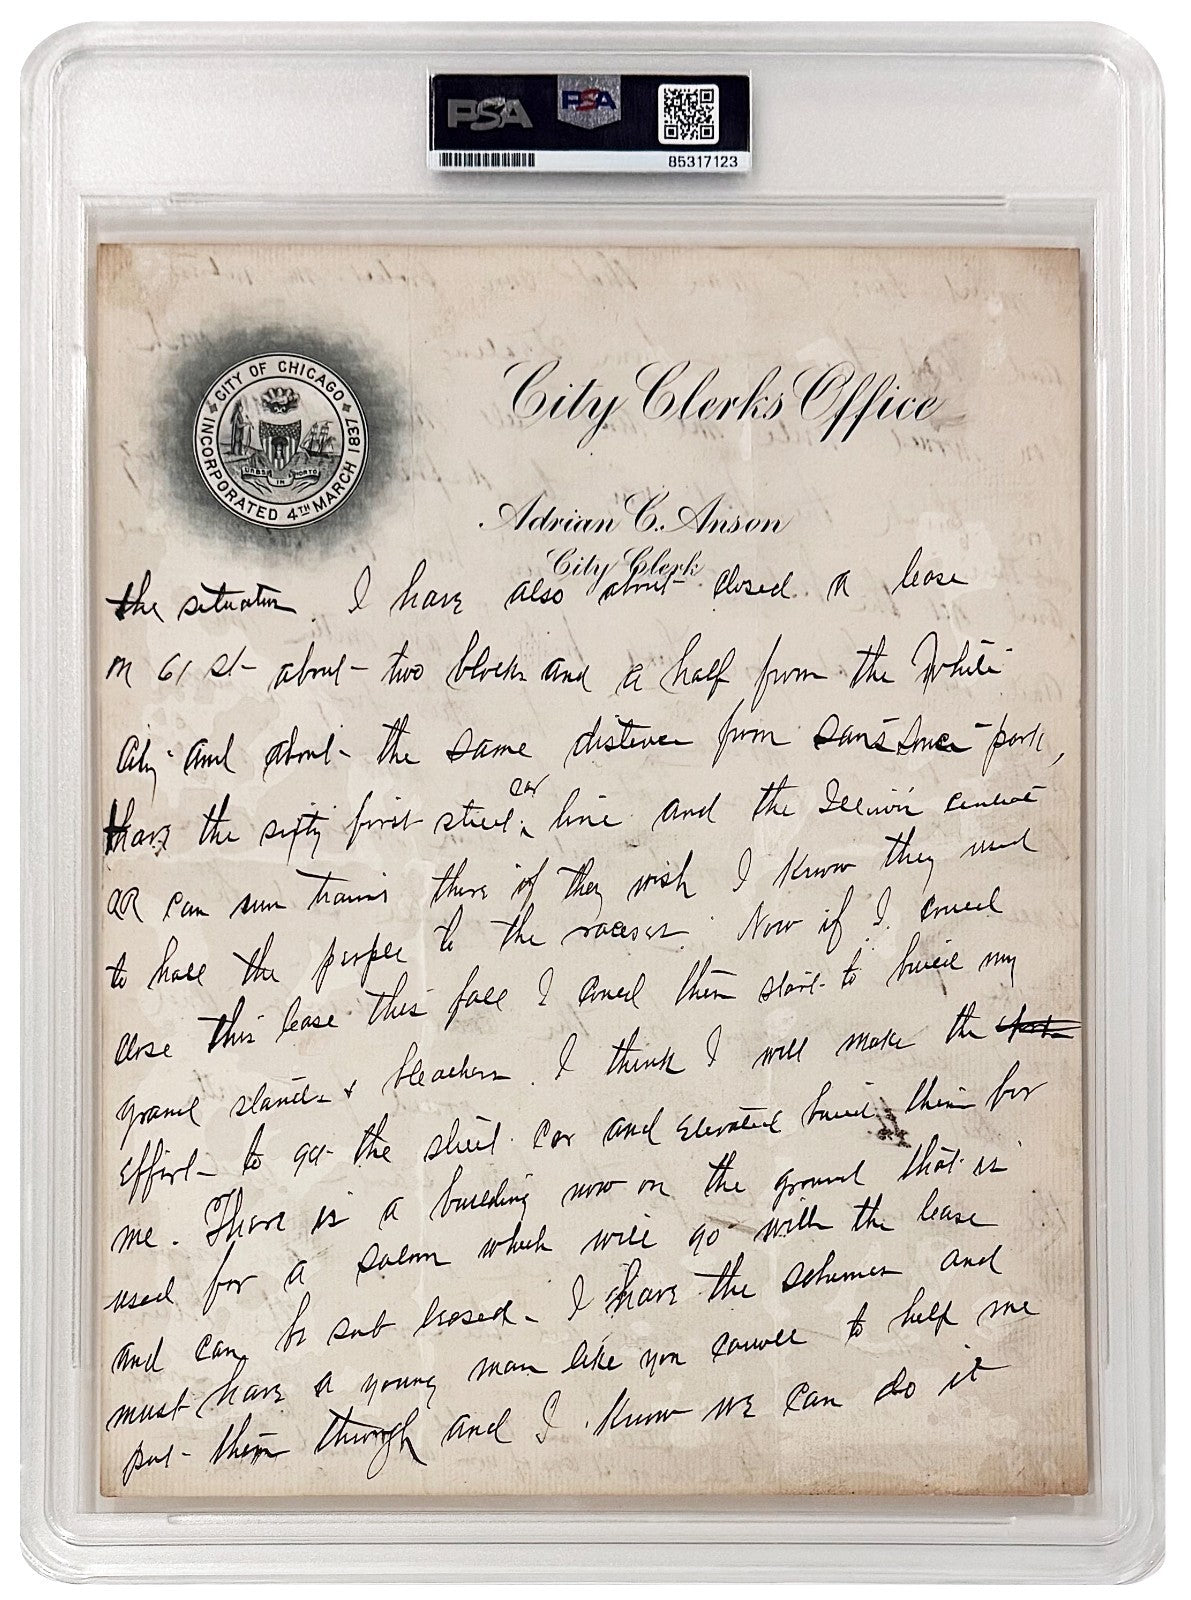 PSA
PSA
85317123
CITY OF CHICAGO
INCORPORATED 4TH MARCH 1837
URBS IN HORTO
City Clerks Office
Adrian C. Anson
City Clerk
the situation. I have also about closed a lease
on 61 St about two blocks and a half from the White
City and about the same distance from sans souci park,
have the sixty first street car line and the Illinois central
RR can run trains there if they wish I know they used
to hall the people to the races. Now if I could
close this lease this fall I could then start to build my
grand stands & bleachers. I think I will make the
effort to get the street car and Elevated build them for
me. There is a building now on the ground that is
used for a saloon which will go with the lease
and can be sub leased. I have the schemes and
must have a young man like you to help me
put them through and I know we can do it